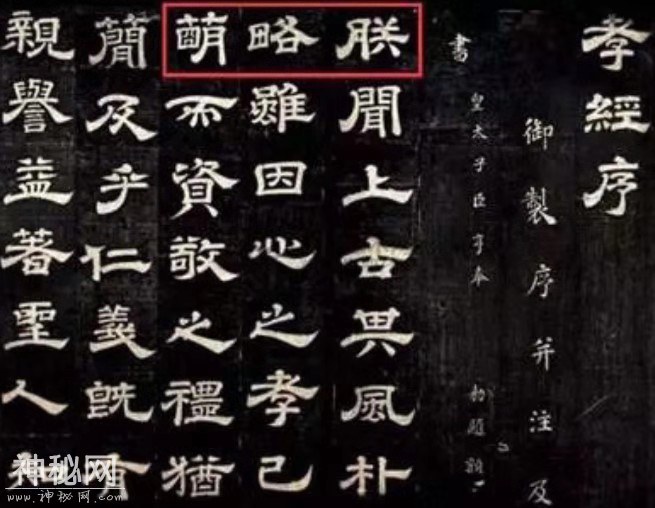 孝經序
御製序并注及
書
皇太子臣亨奉 勅題額
朕聞上古其風朴
略雖因心之孝已
萌而資敬之禮猶
簡及乎仁義既有
親譽益著聖人
神秘网
www.神秘网.com